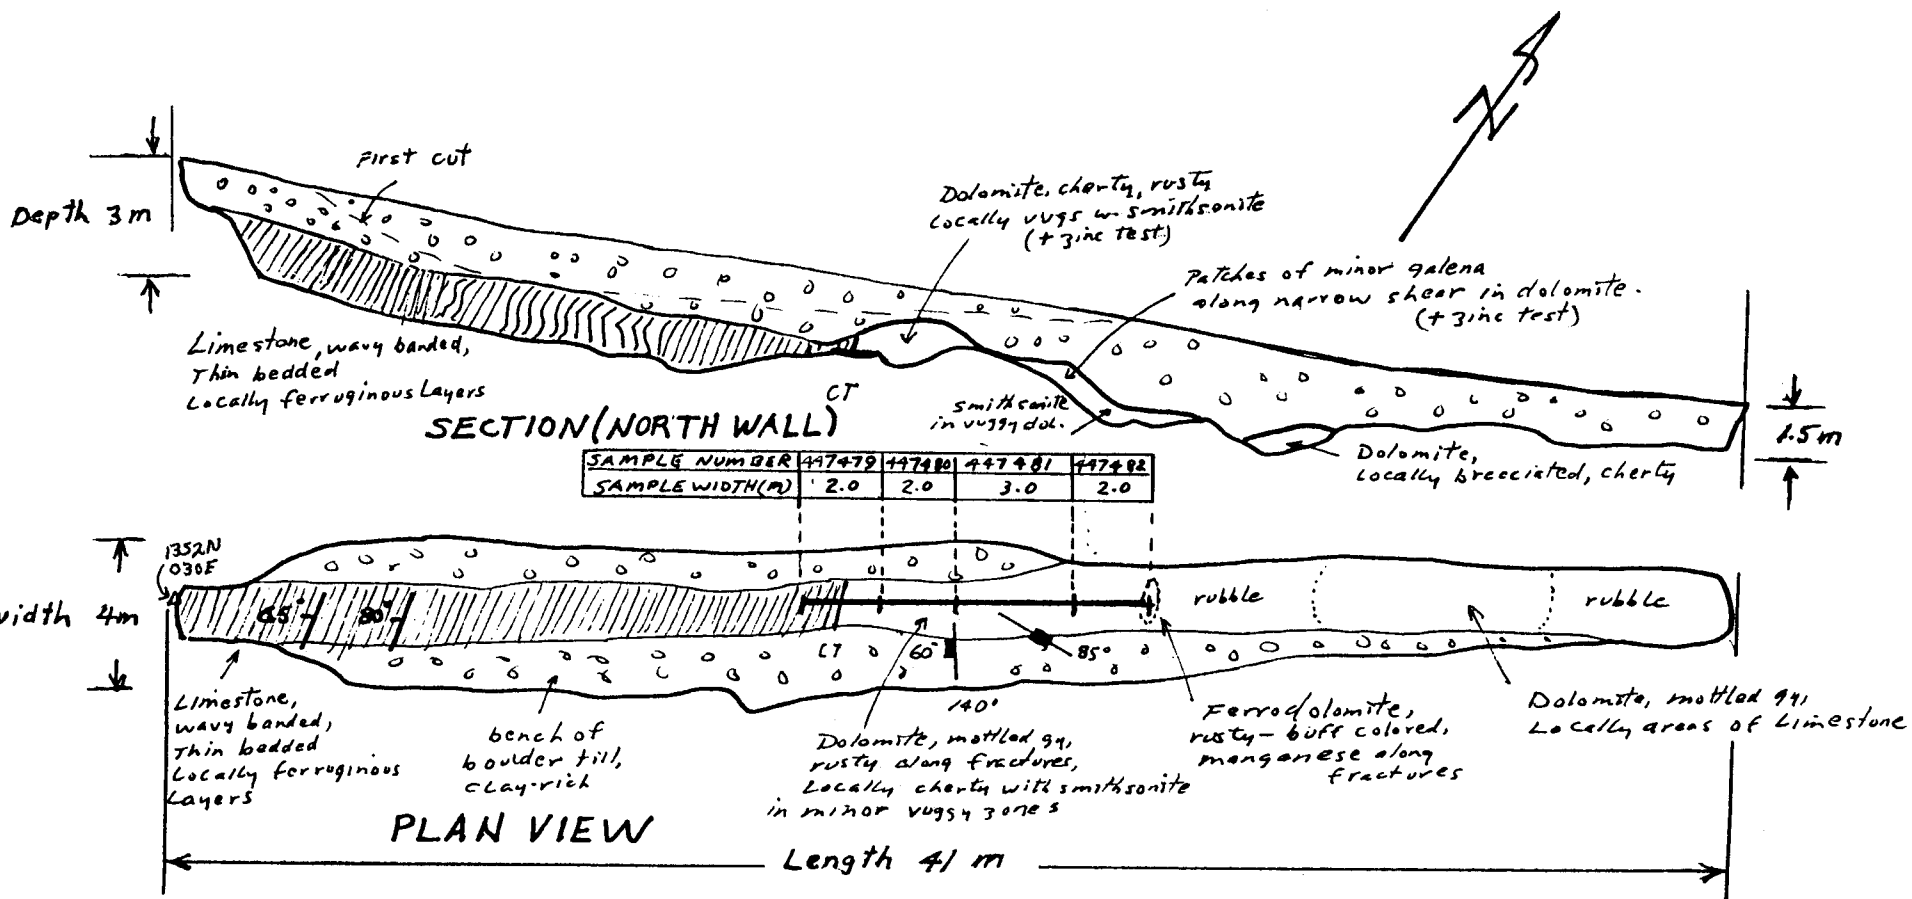 N
First cut
Depth 3 m
Dolomite, cherty, rusty
Locally vugs w. smithsonite
(+ zinc test)
Patches of minor galena
along narrow shear in dolomite.
(+ zinc test)
Limestone, wavy banded,
Thin bedded
Locally ferruginous Layers
CT
smithsonite
in vuggy dol.
SECTION (NORTH WALL)
1.5 m
Dolomite,
Locally brecciated, cherty
SAMPLE NUMBER 447479 447480 447481 447482
SAMPLE WIDTH (m) 2.0 2.0 3.0 2.0
1352N
030E
width 4m
65° 80°
rubble
rubble
CT 60° 85°
140°
Limestone,
wavy banded,
Thin bedded
Locally ferruginous
Layers
bench of
boulder till,
clay-rich
Dolomite, mottled gy,
rusty along fractures,
Locally cherty with smithsonite
in minor vuggy zones
Ferrodolomite,
rusty-buff colored,
manganese along
fractures
Dolomite, mottled gy,
Locally areas of Limestone
PLAN VIEW
Length 41 m